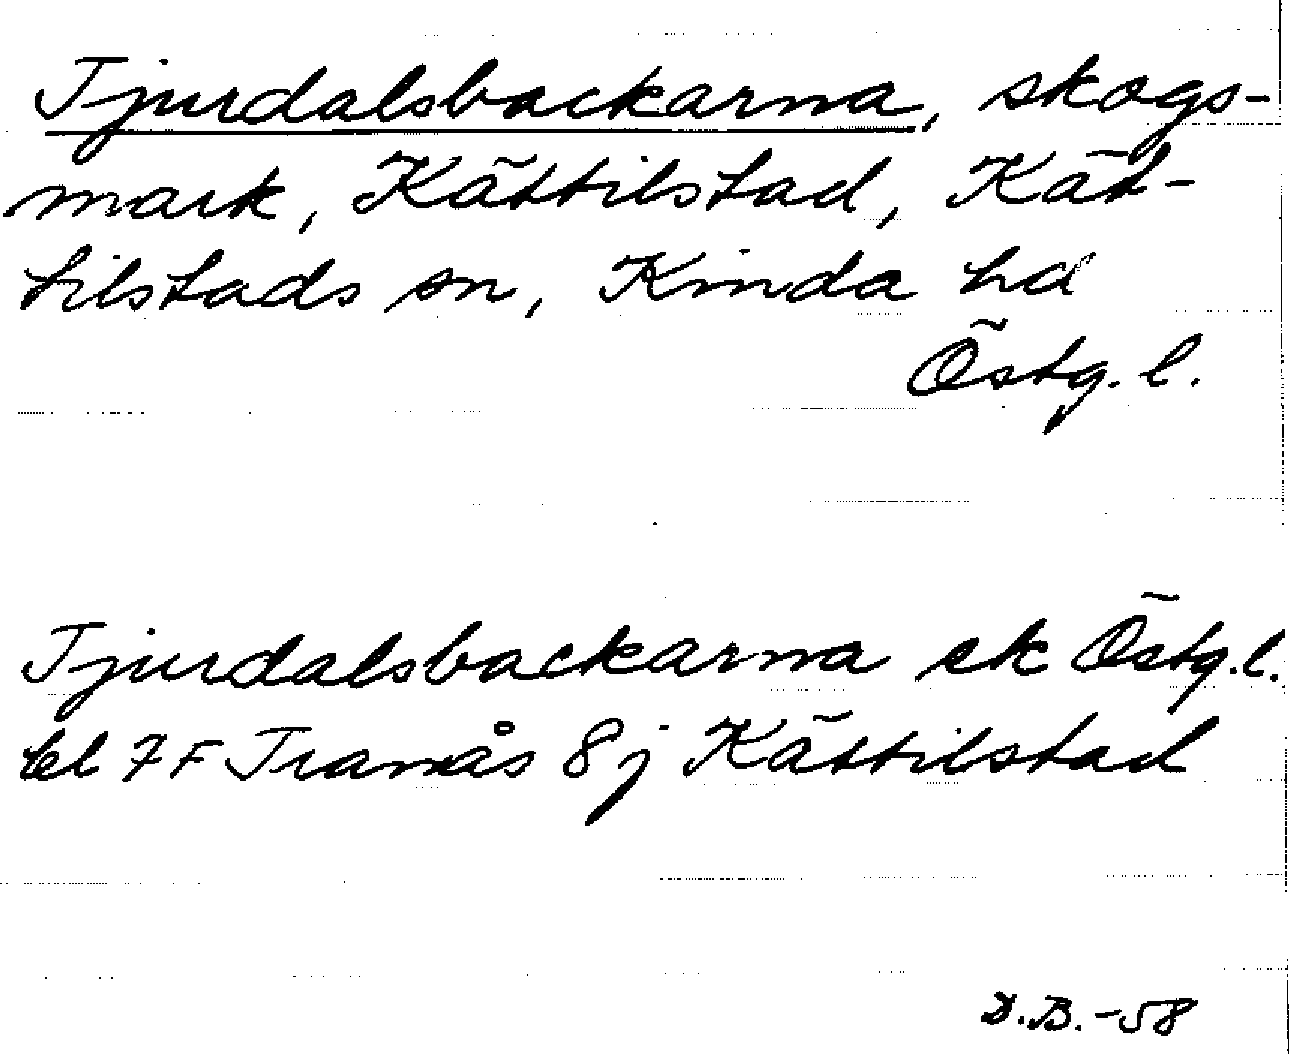 Tjurdalsbackarna, skogs-
mark, Kättilstad, Kät-
tilstads sn, Kinda hd
Östg. l.
Tjurdalsbackarna ek Östg. l.
bl 7 F Tranås 8 j Kättilstad
D.B. -58